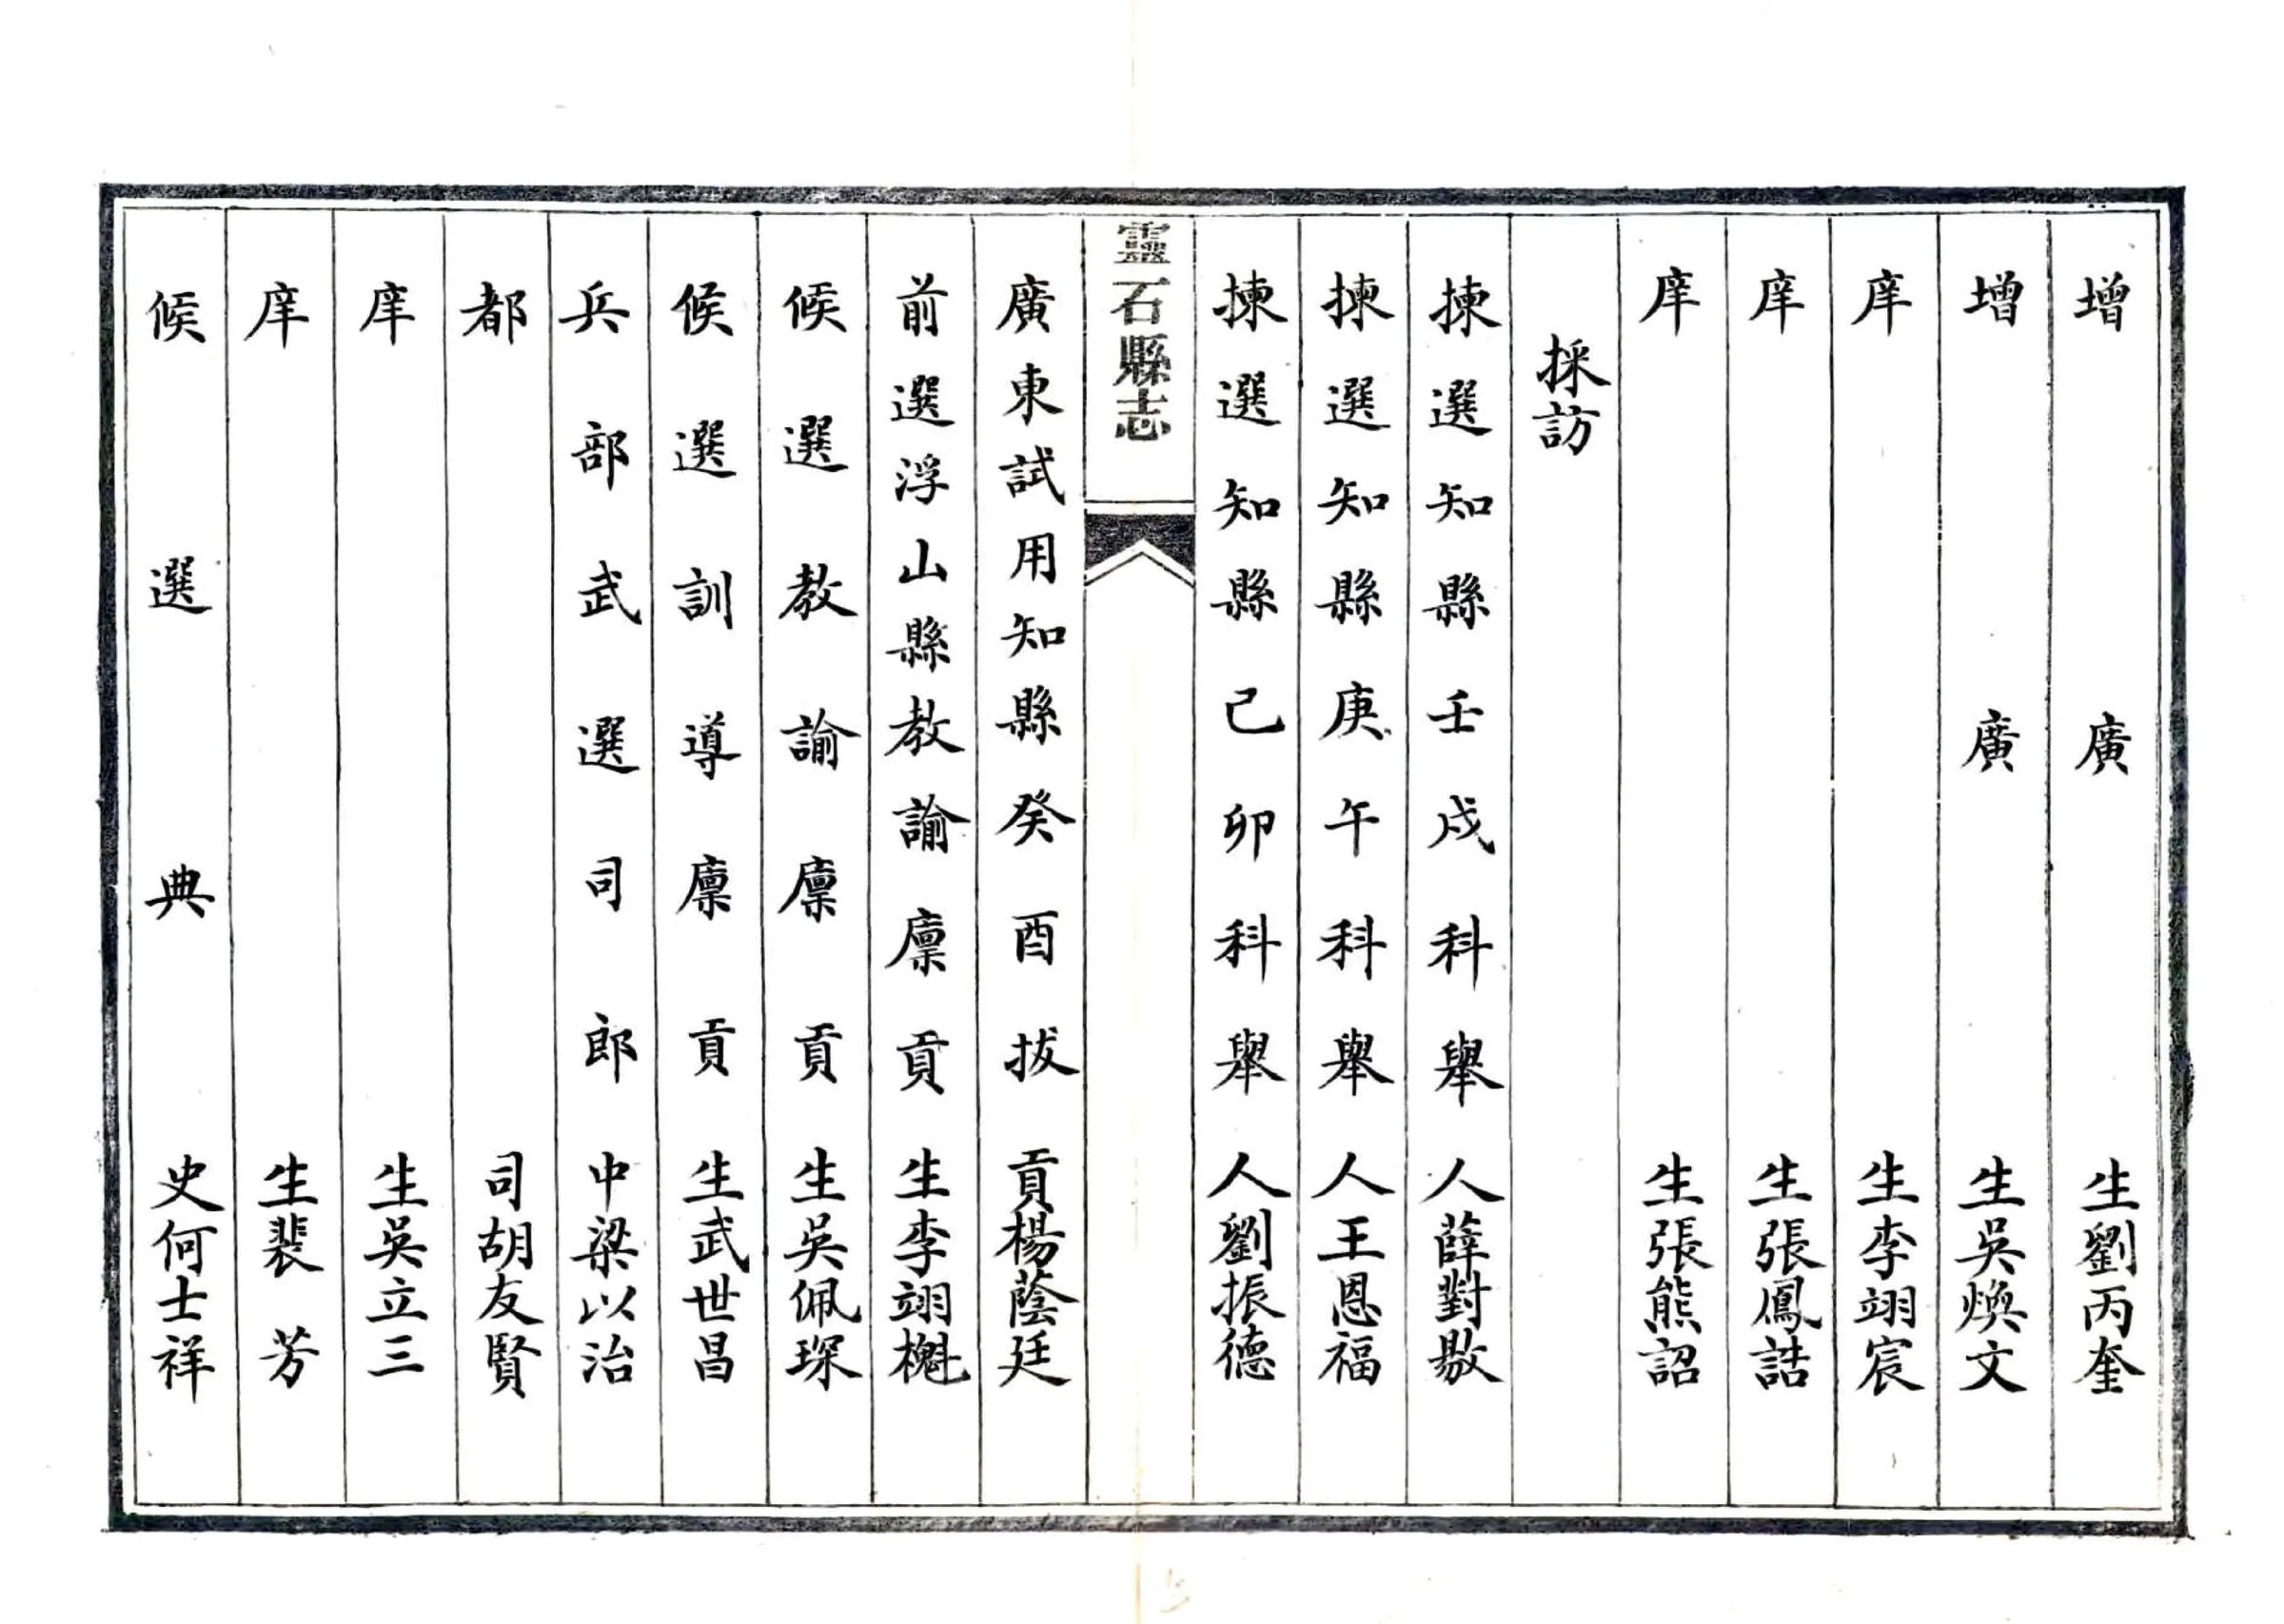 增廣生劉丙奎
增廣生吳煥文
庠生李翊宸
庠生張鳳誥
庠生張熊詔
採訪
揀選知縣壬戌科舉人薛對敭
揀選知縣庚午科舉人王恩福
揀選知縣己卯科舉人劉振德
靈石縣志
廣東試用知縣癸酉拔貢楊蔭廷
前選浮山縣教諭廩貢生李翊櫆
候選教諭廩貢生吳佩琛
候選訓導廩貢生武世昌
兵部武選司郎中梁以治
都司胡友賢
庠生吳立三
庠生裴芳
候選典史何士祥